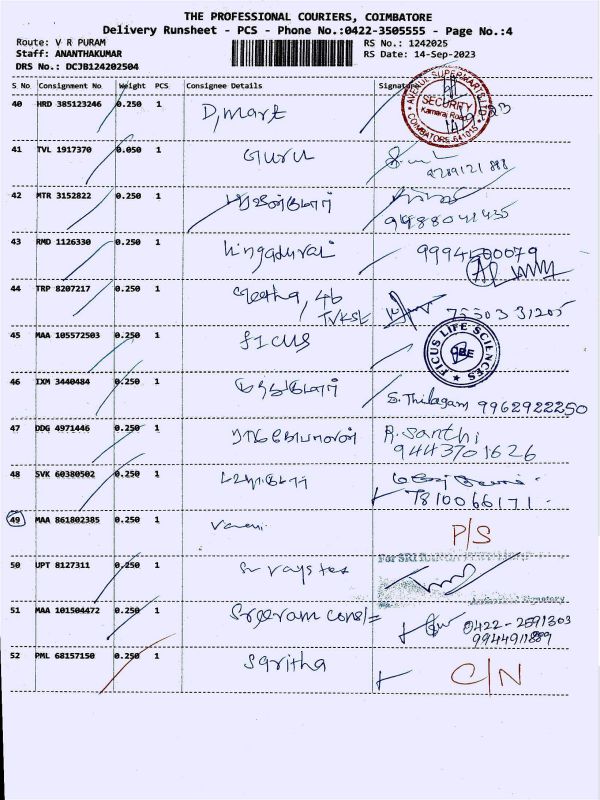 THE PROFESSIONAL COURIERS, COIMBATORE
Delivery Runsheet - PCS - Phone No.:0422-3505555 - Page No.:4
Route: V R PURAM RS No.: 1242025
Staff: ANANTHAKUMAR RS Date: 14-Sep-2023
DRS No.: DCJB124202504
S No Consignment No Weight PCS Consignee Details Signature
40 HRD 385123246 0.250 1 D,mart
AVENUE SUPERMARTS LTD
SECURITY
Kamaraj Road
COIMBATORE-641015
41 TVL 1917370 0.050 1 Guru
9789121898
42 MTR 3152822 0.250 1
9488041435
43 RMD 1126330 0.250 1 Lingadurai 9994500079
44 TRP 8207217 0.250 1 Geetha, 4b 7550331205
TVKSE
45 MAA 105572503 0.250 1 FICUS
FICUS LIFE SCIENCES
CBE
46 IXM 3440484 0.250 1
S. Thilagam 9962922250
47 DDG 4971446 0.250 1 A. Santhi
9443701626
48 SVK 60380502 0.250 1
7810066171
49 MAA 861802385 0.250 1 P/S
50 UPT 8127311 0.250 1
For SRI
51 MAA 101504472 0.250 1 Sreeram const= 0422-2591303
9944911889
52 PML 68157150 0.250 1 Saritha C/N